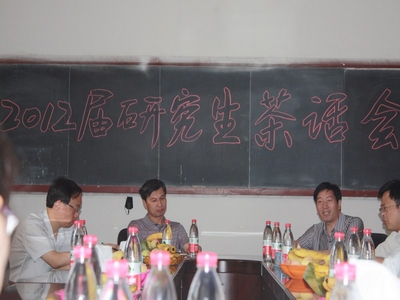 2012届研究生茶话会